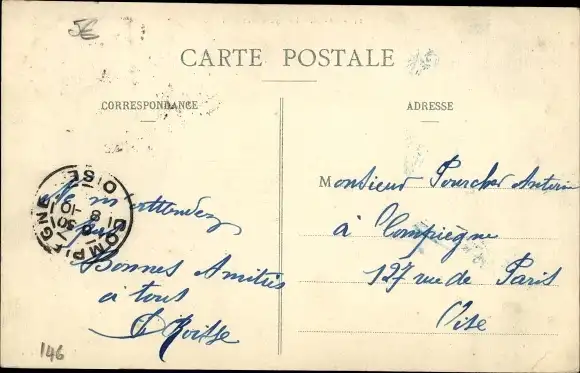 5€
CARTE POSTALE
CORRESPONDANCE
ADRESSE
COMPIEGNE
OISE
Ne m'attendez
pas
Bonnes Amitiés
à tous
146
Monsieur Pourcher Antonin
à Compiègne
127 rue de Paris
Oise